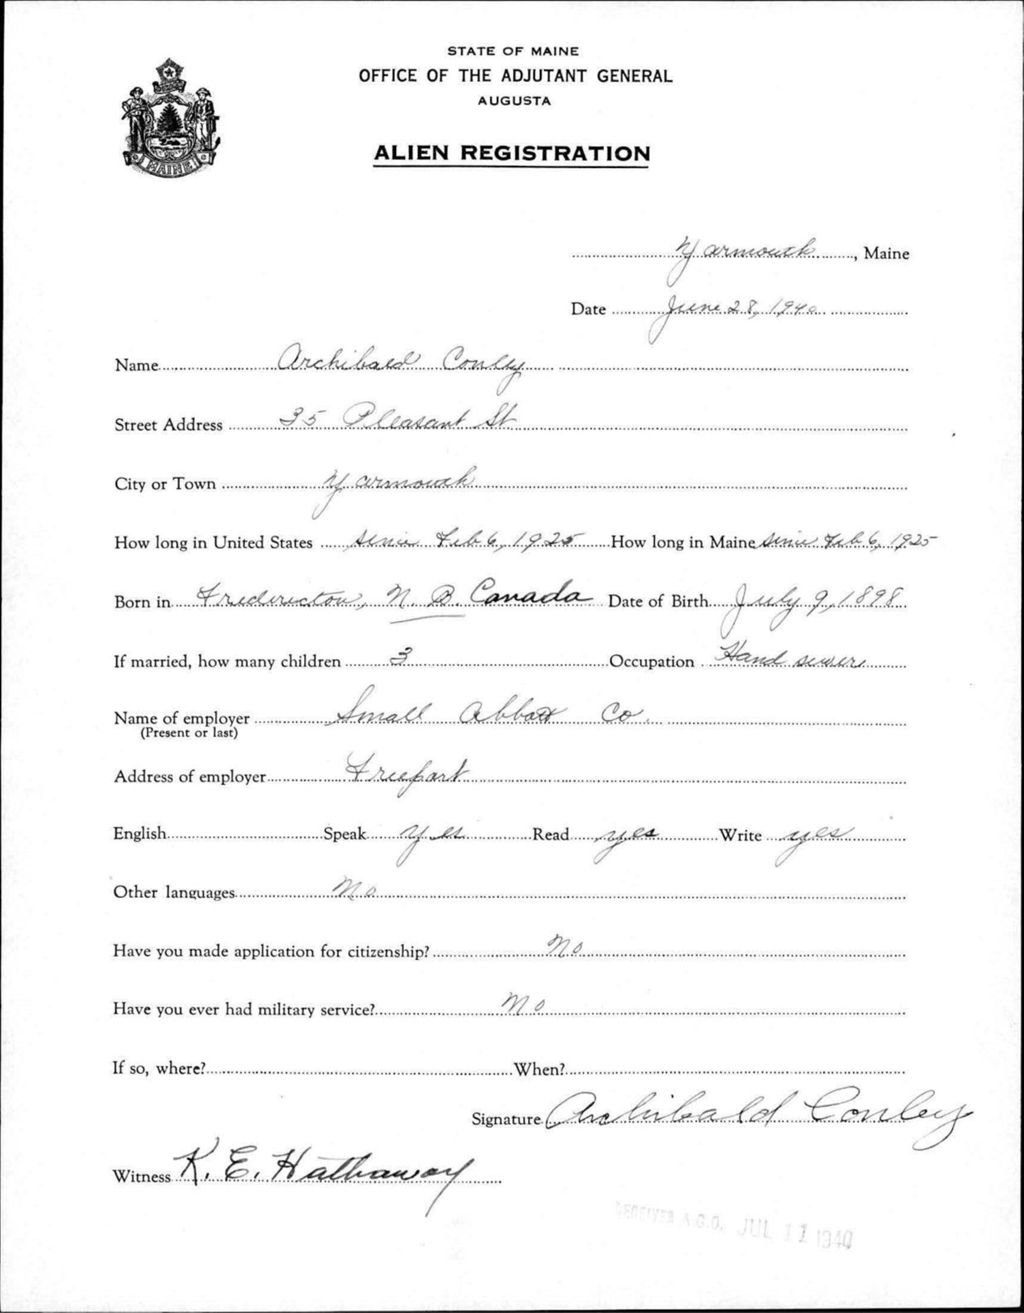 STATE OF MAINE
OFFICE OF THE ADJUTANT GENERAL
AUGUSTA
ALIEN REGISTRATION
MAINE
Yarmouth, Maine
Date June 28, 1940
Name Archibald Conley
Street Address 35 Pleasant St
City or Town Yarmouth
How long in United States since Feb 6, 1925 How long in Maine since Feb 6, 1925
Born in Fredericton, N. B. Canada Date of Birth July 9, 1898
If married, how many children 3 Occupation Hand sewer
Name of employer Small Abbott Co.
(Present or last)
Address of employer Freeport
English Speak yes Read yes Write yes
Other languages No
Have you made application for citizenship? No
Have you ever had military service? No
If so, where? When?
Signature Archibald Conley
Witness K. E. Hathaway
RECEIVED A.G.O. JUL 11 1940